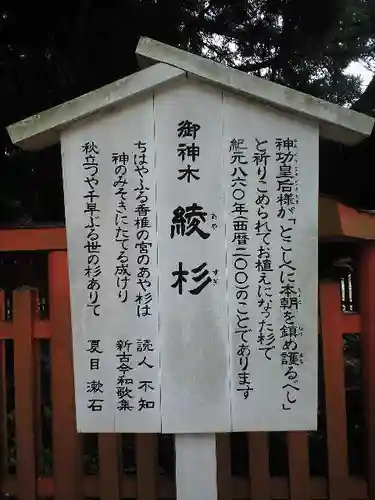 神功皇后様が「とこしへに本朝を鎮め護るべし」
と祈りこめられてお植えになった杉で
紀元八六〇年(西暦二〇〇)のことであります
御神木 綾杉
ちはやふる香椎の宮のあや杉は
神のみそきにたてる成けり
読人不知
新古今和歌集
秋立つや千早ふる世の杉ありて
夏目漱石